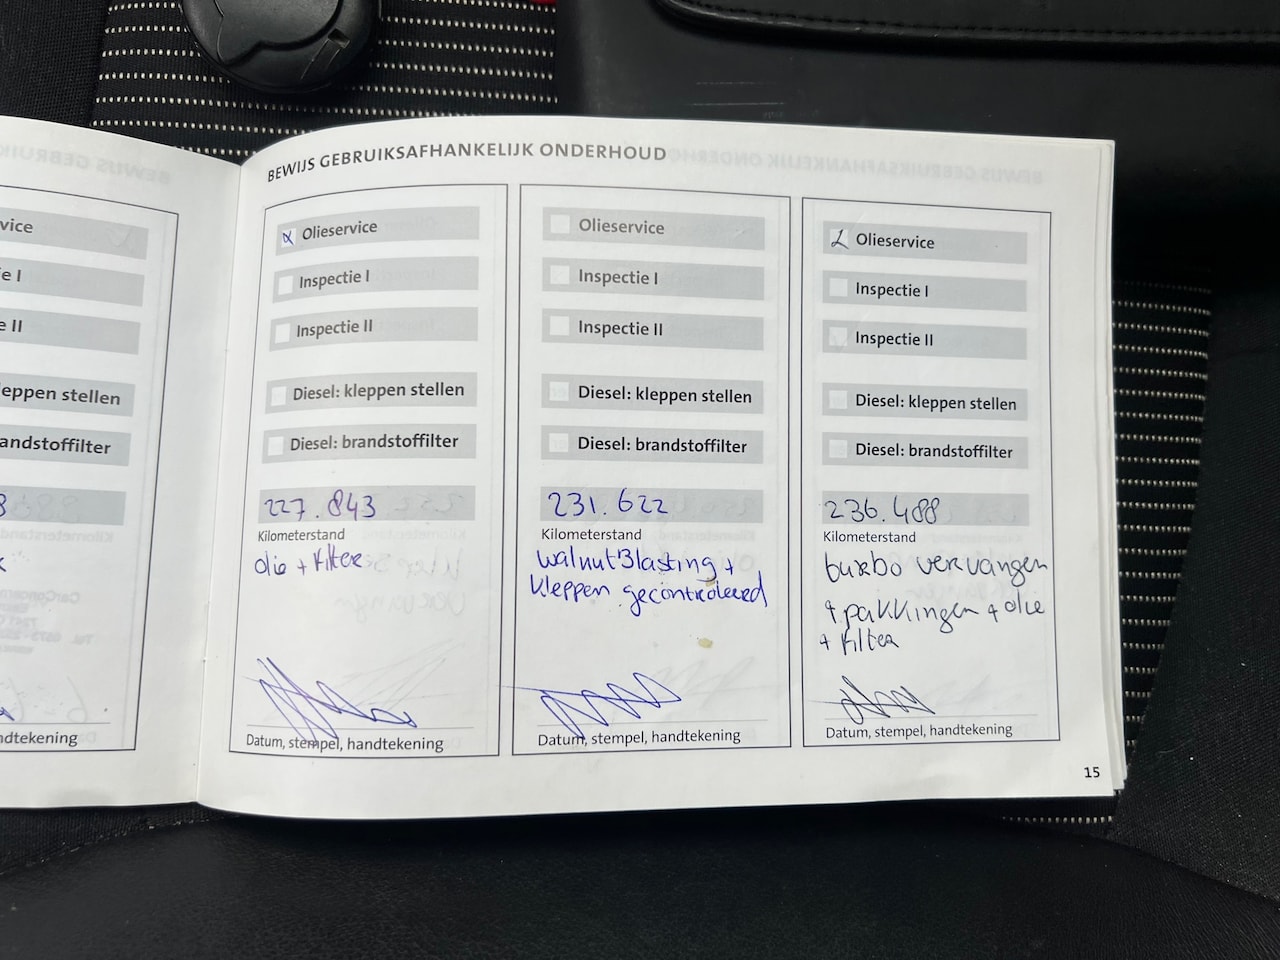 BEWIJS GEBRUIKSAFHANKELIJK ONDERHOUD
vice
e I
e II
leppen stellen
andstoffilter
8
ndtekening
Olieservice
Inspectie I
Inspectie II
Diesel: kleppen stellen
Diesel: brandstoffilter
227.843
Kilometerstand
olie + filter
Datum, stempel, handtekening
Olieservice
Inspectie I
Inspectie II
Diesel: kleppen stellen
Diesel: brandstoffilter
231.622
Kilometerstand
walnutBlasting +
kleppen gecontroleerd
Datum, stempel, handtekening
Olieservice
Inspectie I
Inspectie II
Diesel: kleppen stellen
Diesel: brandstoffilter
236.488
Kilometerstand
turbo vervangen
+ pakkingen + olie
+ filter
Datum, stempel, handtekening
15